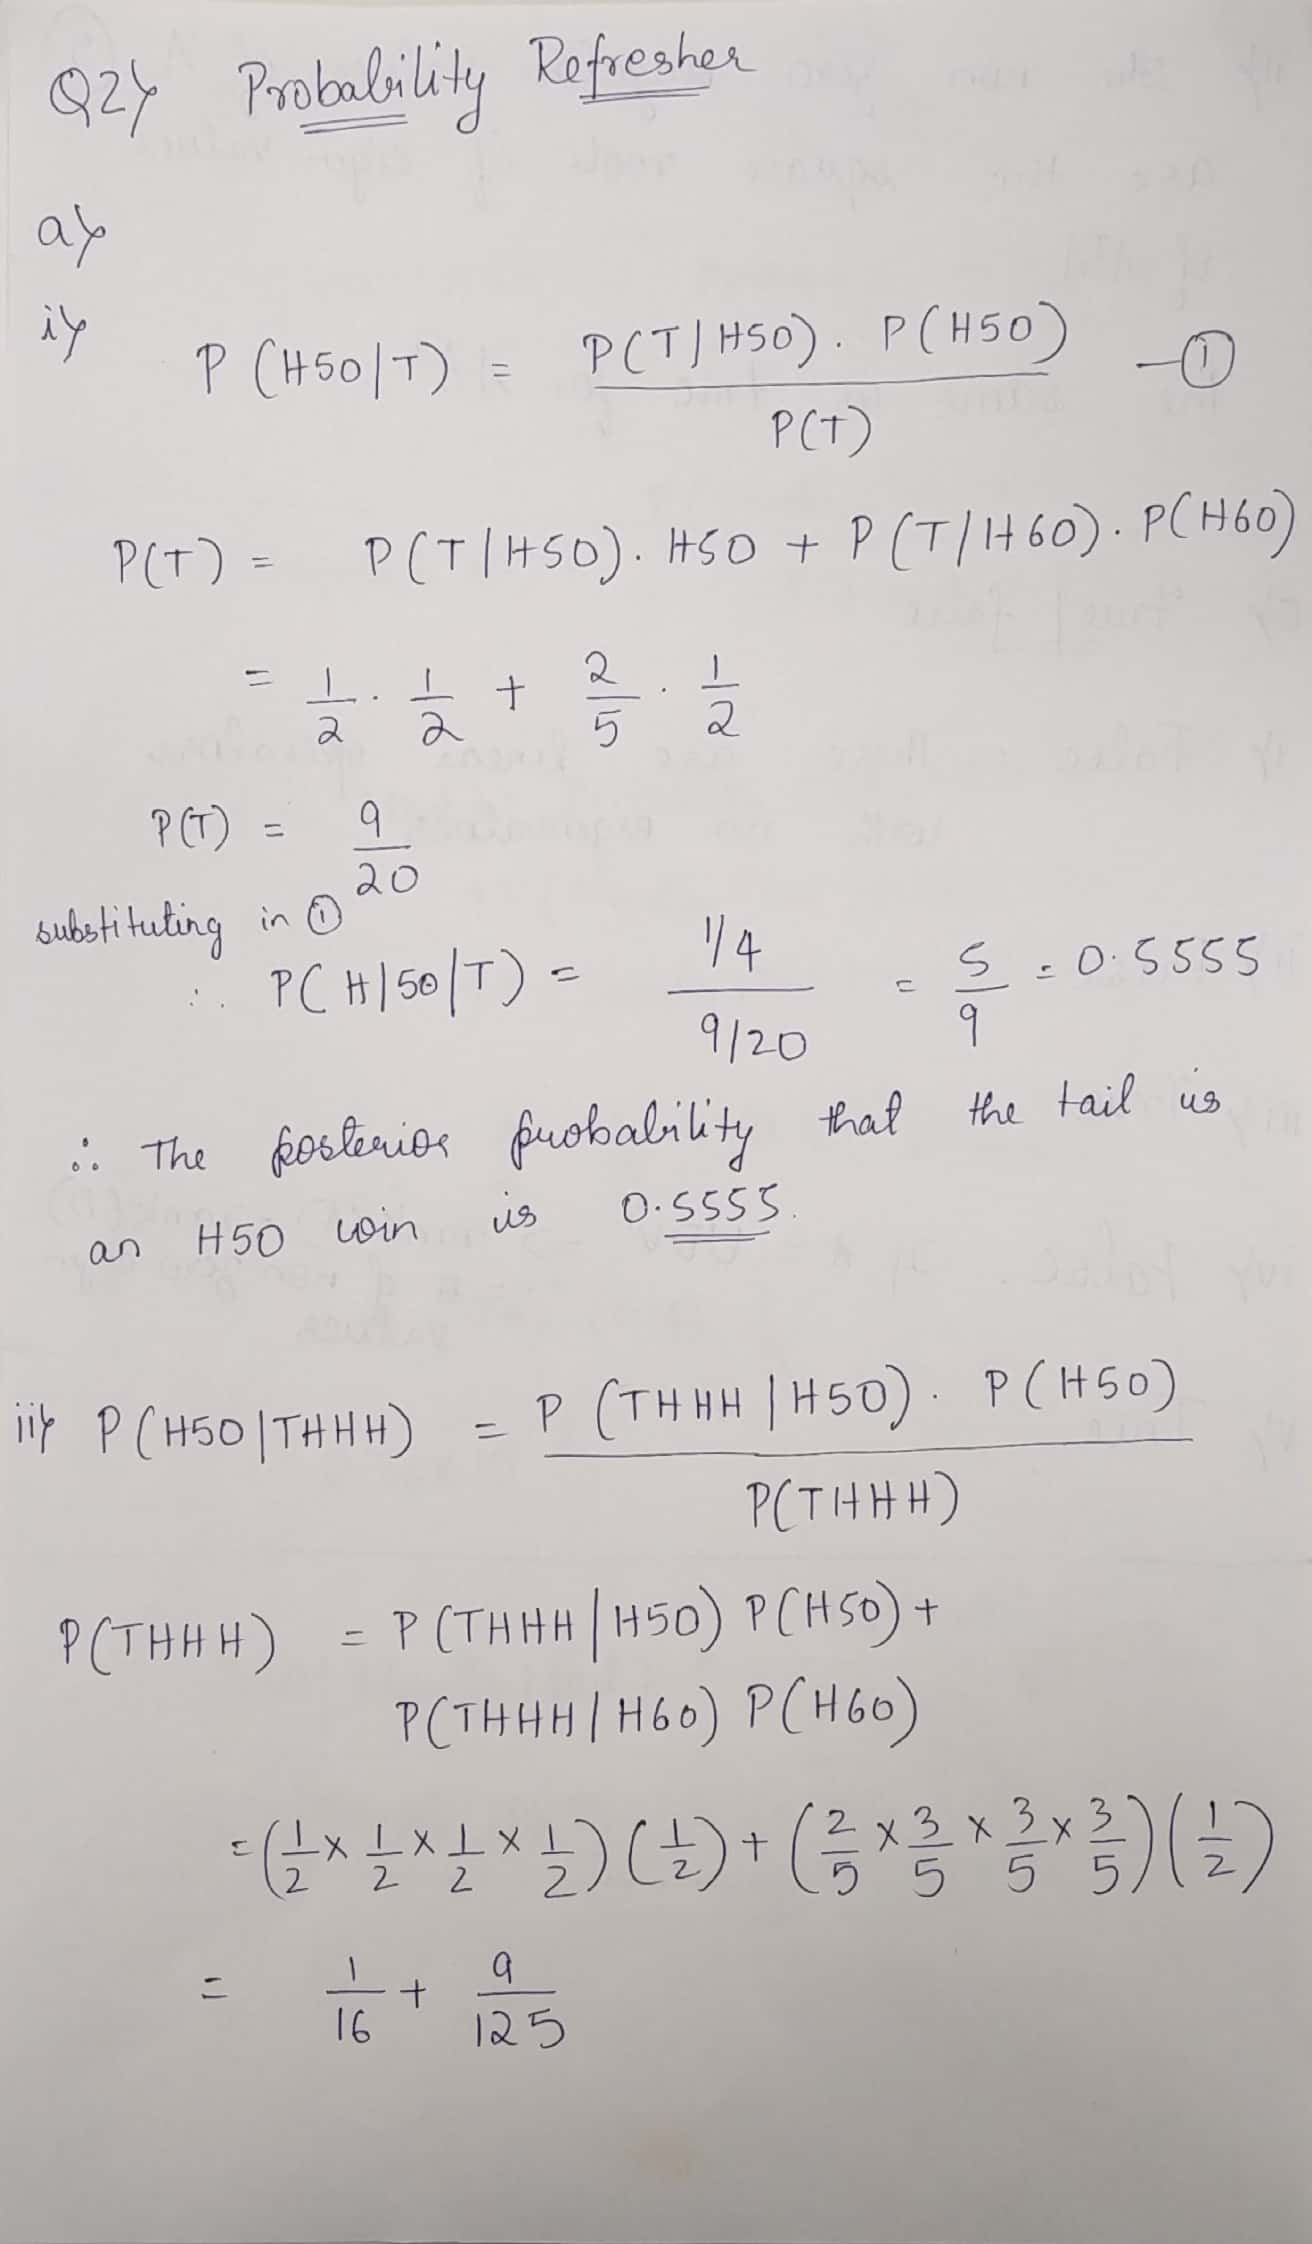 Q2) Probability Refresher
a)
i) P (H50|T) = P(T|H50). P(H50) / P(T) - ①
P(T) = P(T|H50). H50 + P(T|H60). P(H60)
= 1/2 . 1/2 + 2/5 . 1/2
P(T) = 9/20
substituting in ①
∴ P(H|50|T) = 1/4 / 9/20 = 5/9 = 0.5555
∴ The posterior probability that the tail is
an H50 coin is 0.5555.
ii) P(H50|THHH) = P(THHH|H50). P(H50) / P(THHH)
P(THHH) = P(THHH|H50) P(H50) +
P(THHH|H60) P(H60)
= (1/2 x 1/2 x 1/2 x 1/2) (1/2) + (2/5 x 3/5 x 3/5 x 3/5) (1/2)
= 1/16 + 9/125